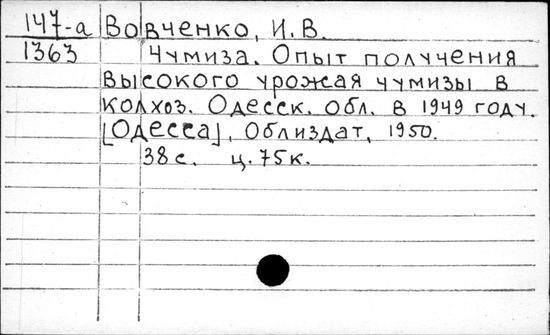 147-а Вовченко, И.В.
1363 Чумиза. Опыт получения
высокого урожая чумизы в
колхоз. Одесск. обл. в 1949 году.
[Одесса], Облиздат, 1950.
38с. ц. 75к.